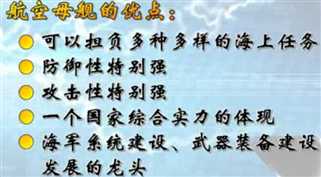 航空母舰的优点：
可以担负多种多样的海上任务
防御性特别强
攻击性特别强
一个国家综合实力的体现
海军系统建设、武器装备建设
发展的龙头